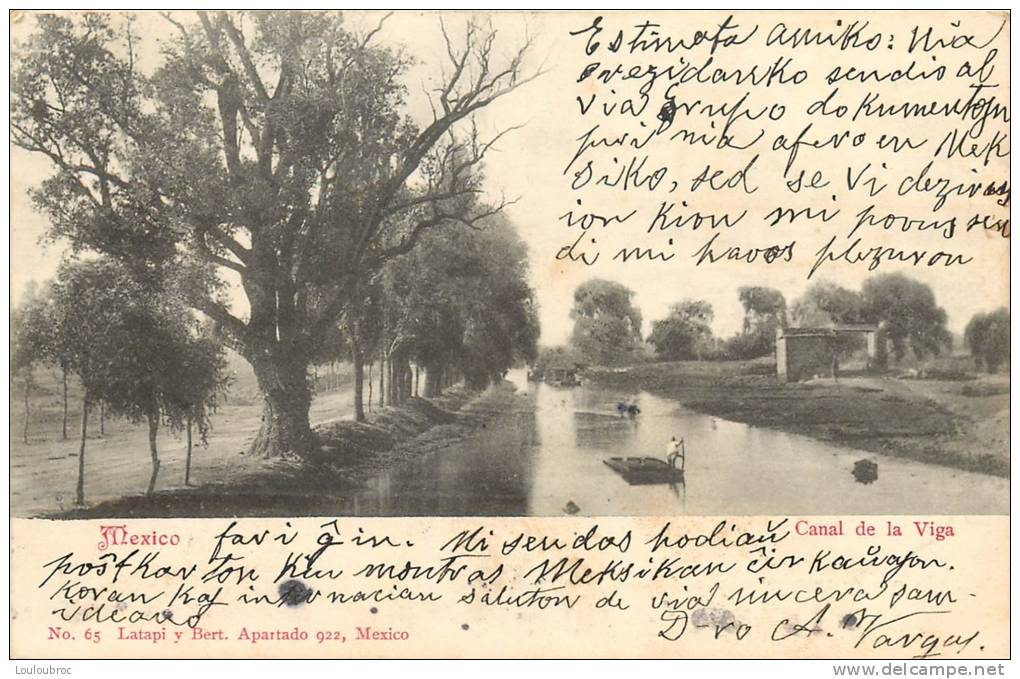 Estimata amiko: Nia
prezidanto sendis al
via Grupo dokumentojn
pri nia afero en Mek
siko, sed se Vi dezirus
ion kion mi povus sen
di mi havos plezuron
Mexico
Canal de la Viga
favi ĝin. Mi sendas hodiaŭ
poŝtkarton kiu montras Meksikan ĉirkaŭaĵon.
Koran kaj internacian saluton de via sincera sam-
ideano
Dro A. Vargas.
No. 65 Latapi y Bert. Apartado 922, Mexico
Louloubroc
www.delcampe.net